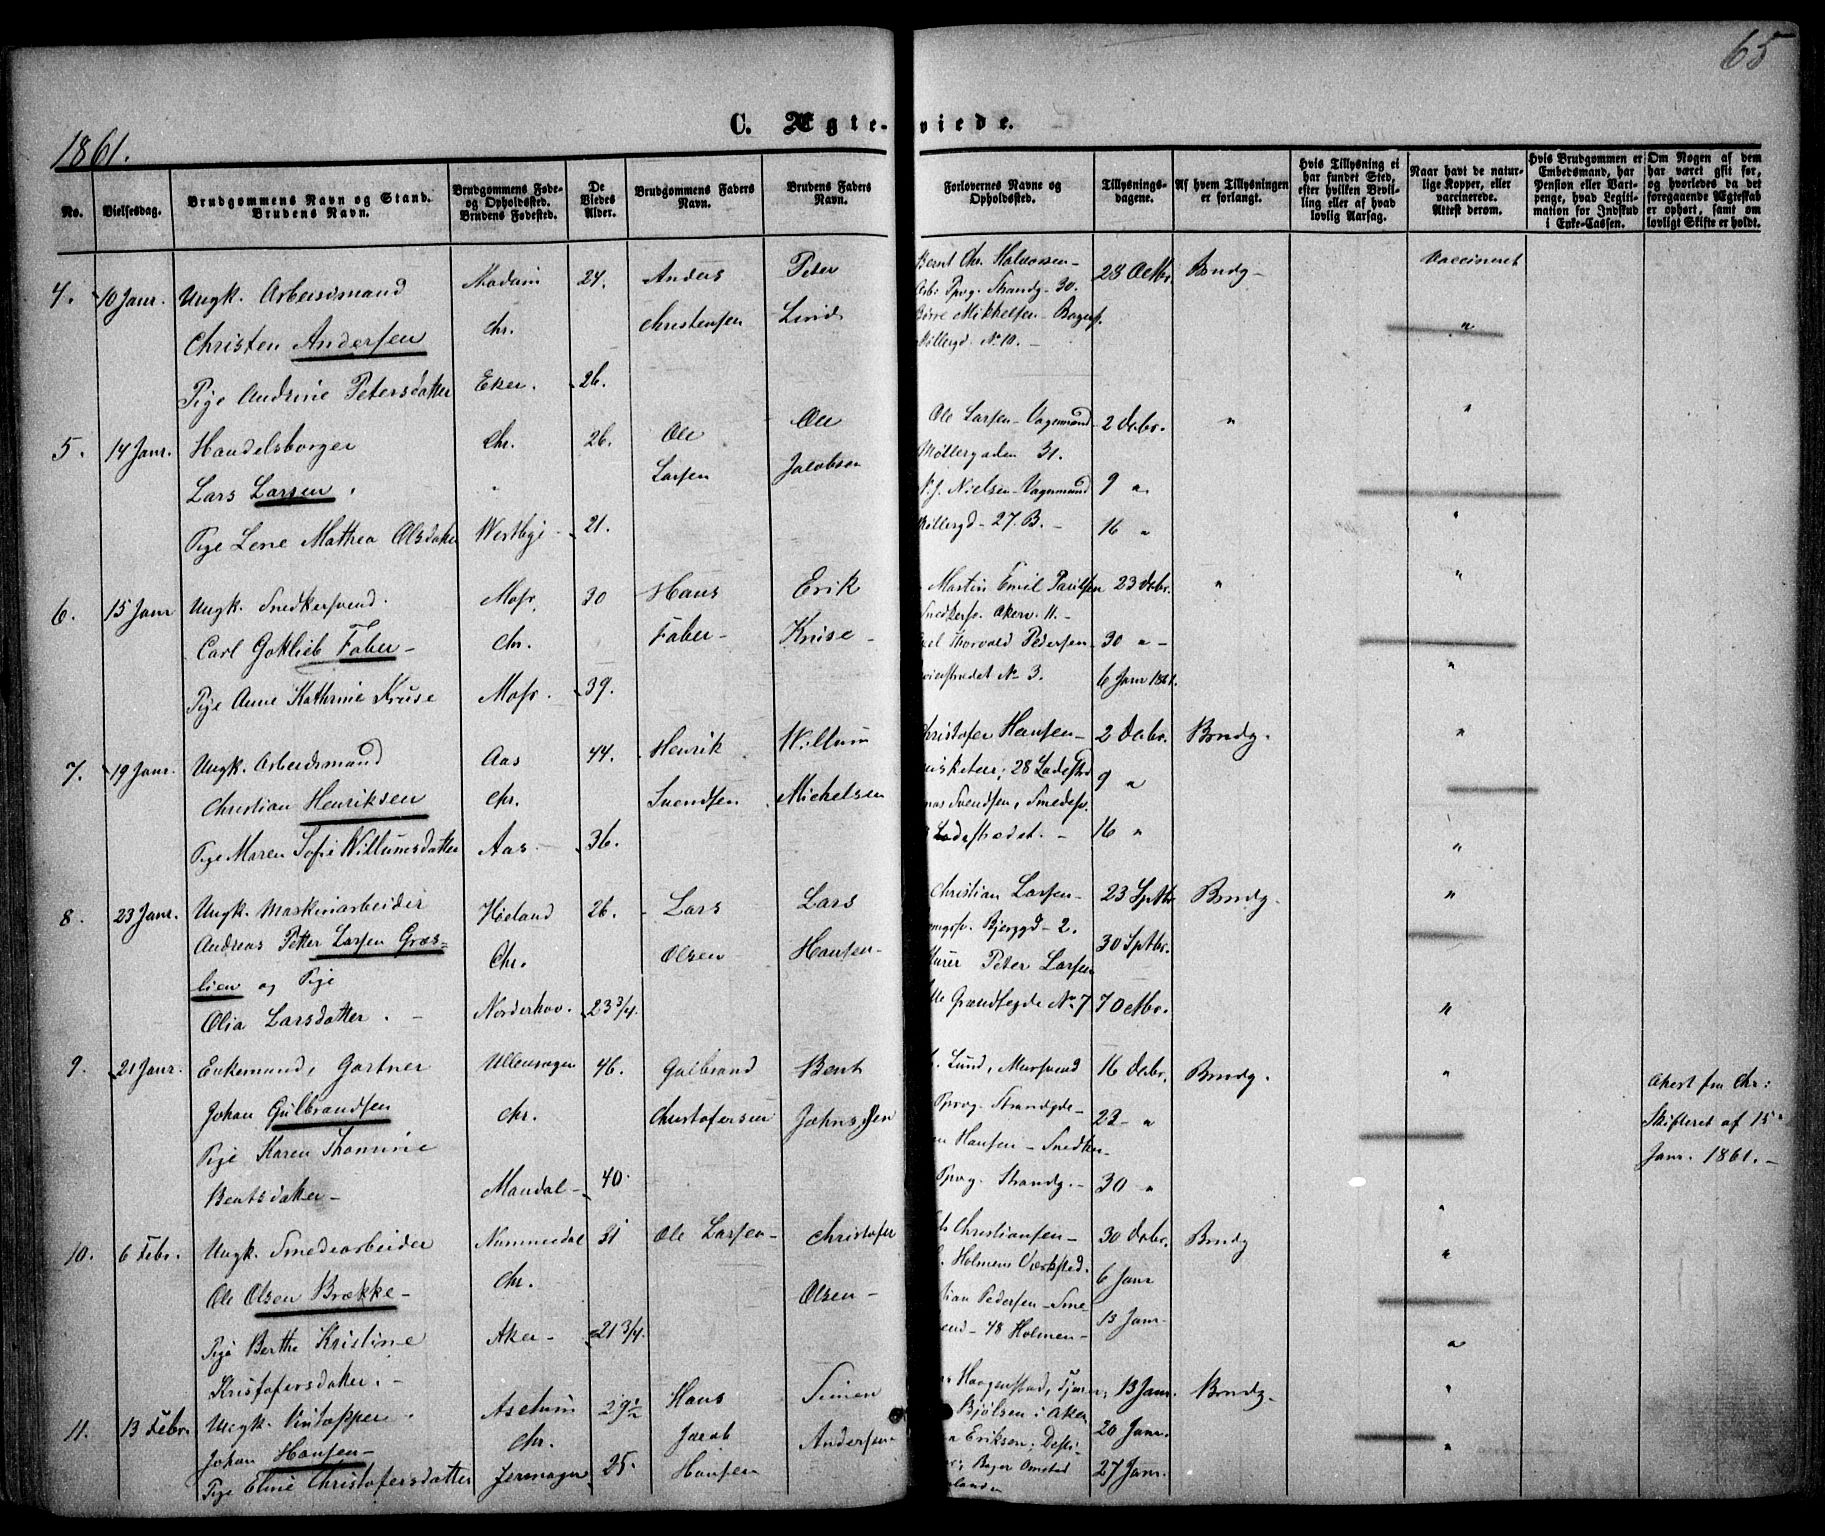 65
1861.
C. Ægte-viede.
No.
Vielsesdag.
Brudgommens Navn og Stand.
Brudens Navn.
Brudgommens Føde- og Opholdssted.
Brudens Fødested.
De Viedes Alder.
Brudgommens Faders Navn.
Brudens Faders Navn.
Forlovernes Navne og Opholdssted.
Tillysnings-dagene.
Af hvem Tillysningen er forlangt.
Hvis Tillysning ei har fundet Sted, efter hvilken Bevilling eller af hvad lovlig Aarsag.
Naar havt de naturlige Kopper, eller vaccinerede. Attest derom.
Hvis Brudgommen er Embedsmand, har Pension eller Vartpenge, hvad Legitimation for Indskud i Enke-Cassen.
Om Nogen af dem har været gift før, og hvorledes da det foregaaende Ægteskab er ophørt, samt om lovligt Skifte er holdt.
4. 10 Janr. Ungk. Arbeidsmand Modum 24. Anders Peter Bernt Chr. Halvorsen- 28 Octbr. Brudg- Vaccineret
Christen Andersen Chr. Christensen Lind Pipvg. Strandg- 30.
Børre Mikkelsen-
Møllergd. No 10. -
Pige Andrine Petersdatter Eker. 26.
5. 14 Janr. Handelsborger Chr. 26. Ole Ole Ole Larsen- Vognmand- 2 Decbr. "
Lars Larsen. Larsen Jacobsen Møllergaden 31.
Nielsen- Vognmand 9 "
Pige Lene Mathea Olsdatter Westbye- 21. Møllergd- 27 B. - 16 "
6. 15 Janr Ungk. Snedkersvend. Moss, 30 Hans Erik Martin Emil Paulsen 23 Decbr. "
Carl Gottlieb Faber- Chr. Faber- Kruse- Snedkersv. Akerv. 11. -
Thorvald Pedersen- 30 " -
Pige Anne Kathrine Kruse Moss. 39. No 3. 6 Janr 1861.
7. 19 Janr. Ungk. Arbeidsmand Aas 44. Henrik Willum Christofer Hansen- 2 Decbr. Brudg.
Christian Henriksen Chr. Svendsen Michelsen 28 Ladestrd 9 "
Svendsen, Smedesv.
Pige Maren Sofie Willumsdatter Aas. 36. Ladestrædet. - 16 "
8. 23 Janr. Ungk. Maskinarbeider Høland 26. Lars Lars Christian Larsen- 23 Septbr Brudg.
Andreas Petter Larsen Græs- Chr. Olsen Hansen- Bjerggd- 2. 30 Septbr.
lien og Pige Murer Peter Larsen
Olia Larsdatter. - Norderhov. 23 3/4. No 7 7 Octbr.
9. 21 Janr. Enkemand, Gartner Ullensager 46. Gulbrand Bent Lund, Mursvend 16 Decbr. Brudg. " Ophørt fra Chr:
Johan Gulbrandsen Chr. Christofersen Johnsen Pipvg. Strandgde- 23- " Skifteret af 15de
Pige Karen Thomine Hansen- Snedker- Janr. 1861. -
Bentsdatter- Mandal- 40. Pipvg. Strandg. - 30 "
10. 6 Febr. Ungk. Smedearbeider Nummedal 31 Ole Larsen- Christofer Christiansen- 30 Decbr. Brudg
Ole Olsen Brække- Chr. Olsen- Holmens Værksted. 6 Janr
Pedersen- Sme-
Pige Berthe Kristine Aker- 21 3/4. 48 Holmen- 13 Janr-
Kristofersdatter. -
11. 13 Febr. Ungk. Vintapper. Asekum 29 1/2 Hans Simen Haagenstad, 13 Janr. Brudg-
Johan Hansen- Chr. Jacob Andersen- Bjølsen i Aker 20 Janr.
Pige Eline Christofersdatter 25. Hansen Eriksen, Desti-
27 Janr.